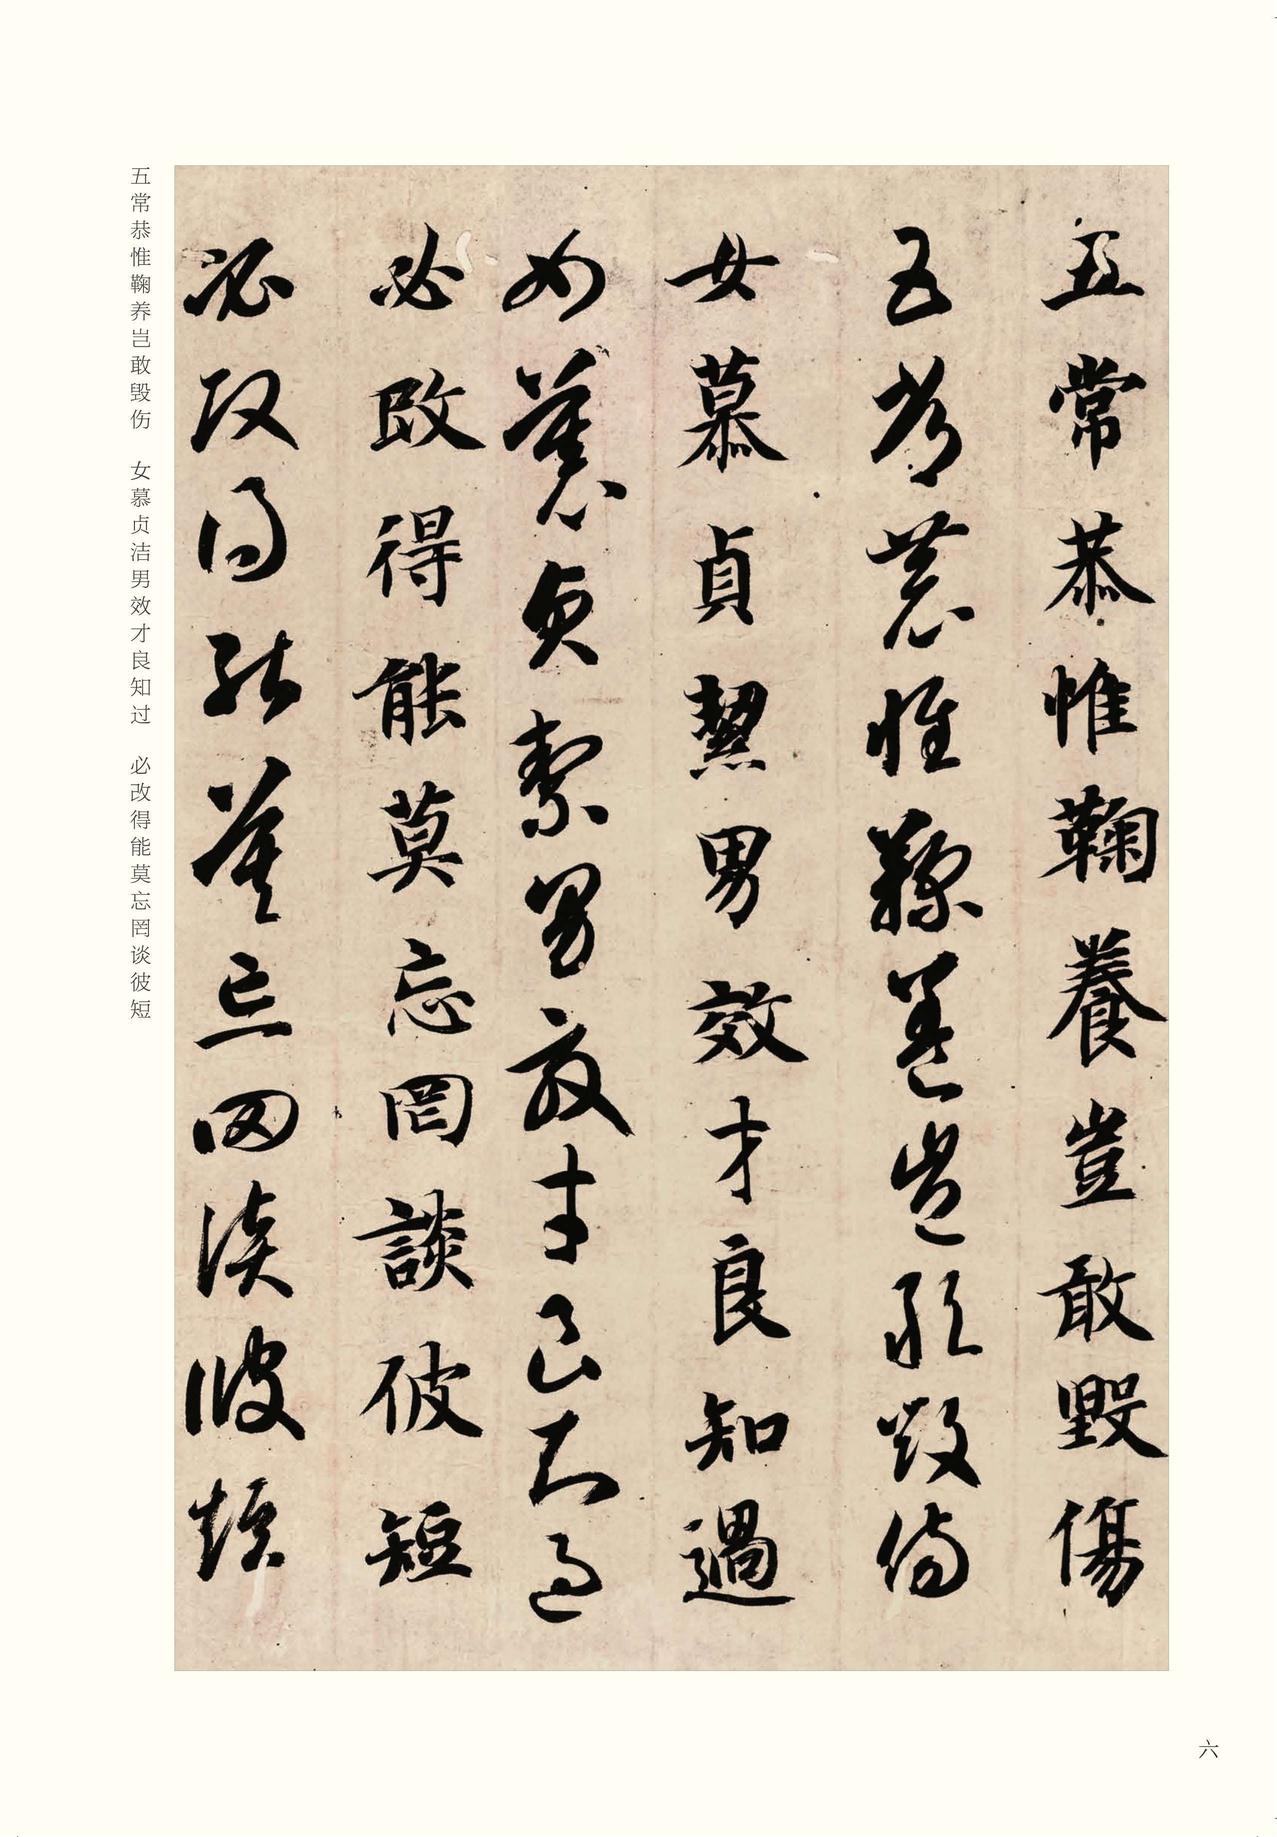 五常恭惟鞠養豈敢毀傷
五常恭惟鞠養豈敢毀傷
女慕貞絜男效才良知過
女慕貞絜男效才良知過
必改得能莫忘罔談彼短
必改得能莫忘罔談彼短
五常恭惟鞠养岂敢毁伤　女慕贞洁男效才良知过　必改得能莫忘罔谈彼短
六